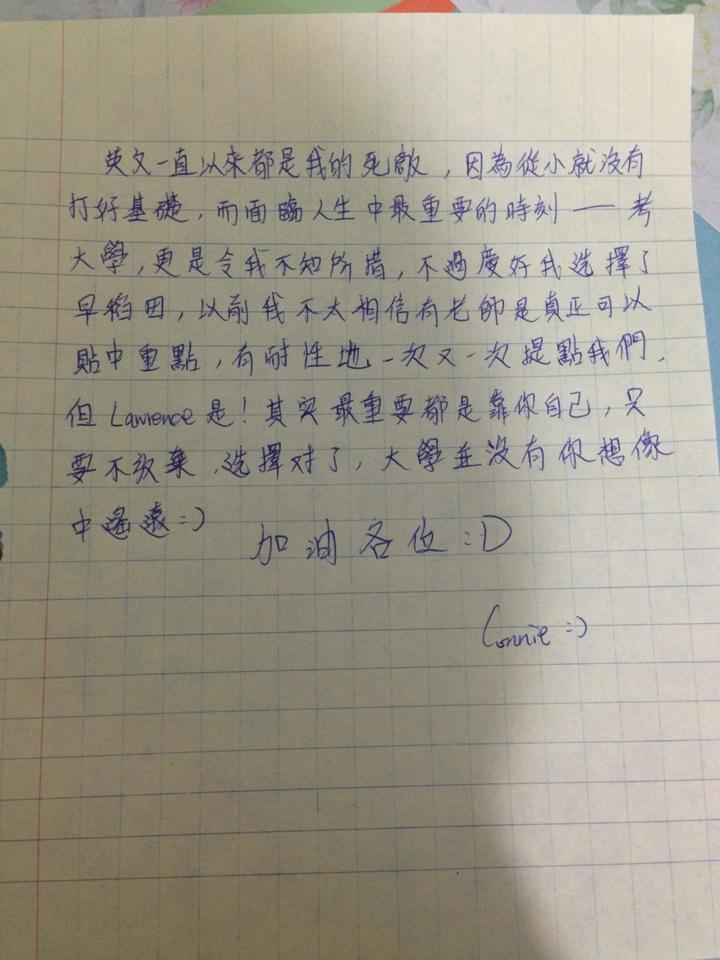 英文一直以來都是我的死敵，因為從小就沒有
打好基礎，而面臨人生中最重要的時刻——考
大學，更是令我不知所措，不過慶好我選擇了
早稻田，以前我不太相信有老師是真正可以
貼中重點，有耐性地一次又一次提點我們，
但Lawrence是！其实最重要都是靠你自己，只
要不放棄，选擇对了，大學並没有你想像
中遙遠:)
加油各位:D
Connie:)